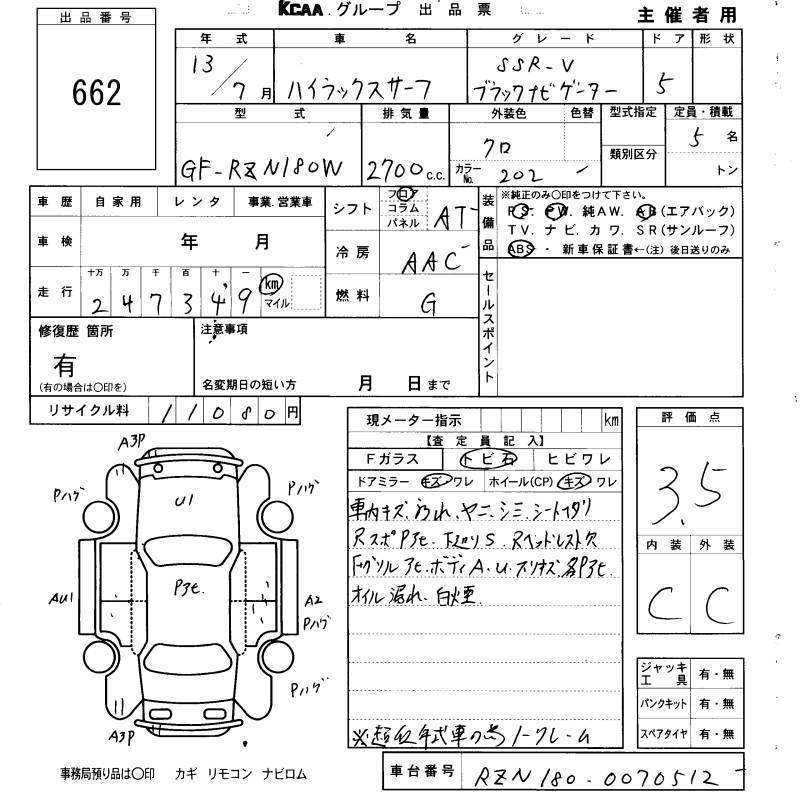 KCAA.グループ 出品票
主催者用
出品番号
662
年式 車名 グレード ドア 形状
13/7月 ハイラックスサーフ SSR-V ブラックナビゲーター 5
型式 排気量 外装色 色替 型式指定 定員・積載
GF-RZN180W 2700c.c. クロ カラーNo. 202 類別区分 5名 トン
車歴 自家用 レンタ 事業.営業車
車検 年 月
走行 十万 万 千 百 十 一
247349 km マイル
シフト フロア コラム パネル AT
冷房 AAC
燃料 G
装備品
※純正のみ〇印をつけて下さい。
PS. PW. 純AW. AB(エアバック)
TV. ナビ. カワ. SR(サンルーフ)
ABS・ 新車保証書←(注) 後日送りのみ
セールスポイント
修復歴 箇所
有
(有の場合は〇印を)
注意事項
名変期日の短い方 月 日まで
リサイクル料 11080円
現メーター指示 km
【査定員記入】
Fガラス トビ石 ヒビワレ
ドアミラー キズ ワレ ホイール(CP) キズ ワレ
車内キズ.ヨゴれ.ヤニ.シミ.シートヘタリ
RスポP3セ.下廻りS.Rヘッドレスト欠
Fグリル3セ.ボディA.U.スリキズ.各P3セ
オイル漏れ.白煙.
※超低年式車の為ノークレーム
評価点
3.5
内装 外装
C C
ジャッキ工具 有・無
パンクキット 有・無
スペアタイヤ 有・無
A3P
Pハゲ
U1
Pハゲ
P3セ.
AU1
A2
Pハゲ
Pハゲ
A3P
事務局預り品は〇印 カギ リモコン ナビロム
車台番号 RZN180-0070512